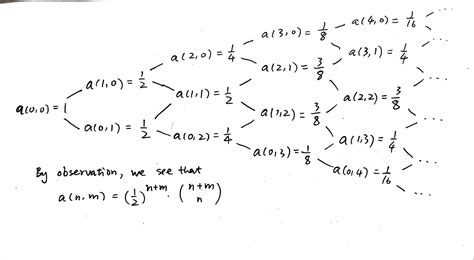 a(4,0) = 1/16 ...
a(3,0) = 1/8
a(2,0) = 1/4 a(3,1) = 1/4 ...
a(1,0) = 1/2 a(2,1) = 3/8
a(0,0) = 1 a(1,1) = 1/2 a(2,2) = 3/8 ...
a(0,1) = 1/2 a(1,2) = 3/8
a(0,2) = 1/4 a(1,3) = 1/4 ...
a(0,3) = 1/8
a(0,4) = 1/16 ...
By observation, we see that
a(n,m) = (1/2)^{n+m} · (n+m n)